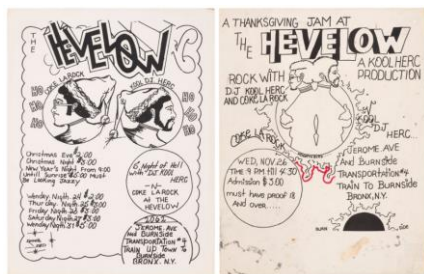 THE
HEVELOW
COKE LA ROCK
KOOL DJ HERC
HO
HO
HO
HO
HO
HO
Christmas Eve $2.00
Christmas Night $3.00
New Year's Night From 9:00
Untill Sunrise $5.00 Must
Be Looking Jazzy
Wensday Nigth 24 $2.00
Thursday Nigth 25 $3.00
Friday Nigth 26 $3.00
Saturday Nigth 27 $3.00
Wensday Nigth 31 $5.00
6 Night of Hell
with "DJ KOOL
HERC
-N-
COKE LA ROCK
at THE
HEVELOW
JEROME AVE
and BURNSIDE
TRANSPORTATION #4
TRAIN UP TOWN To
BURNSIDE
BRONX. N.Y.
A THANKSGIVING JAM AT
THE HEVELOW
A KOOLHERC
PRODUCTION
ROCK WITH
D.J KOOL HERC
AND COKE LA ROCK
KOOL
DJ
HERC...
COKE LA ROCK
WED, NOV. 26
TIME 9 PM till 4:30
Admission $3.00
must have proof 18
And over.....
JEROME AVE
And BURNSIDE
TRANSPORTATION #4
TRAIN TO BURNSIDE
BRONX, N.Y.
BURN
SIDE